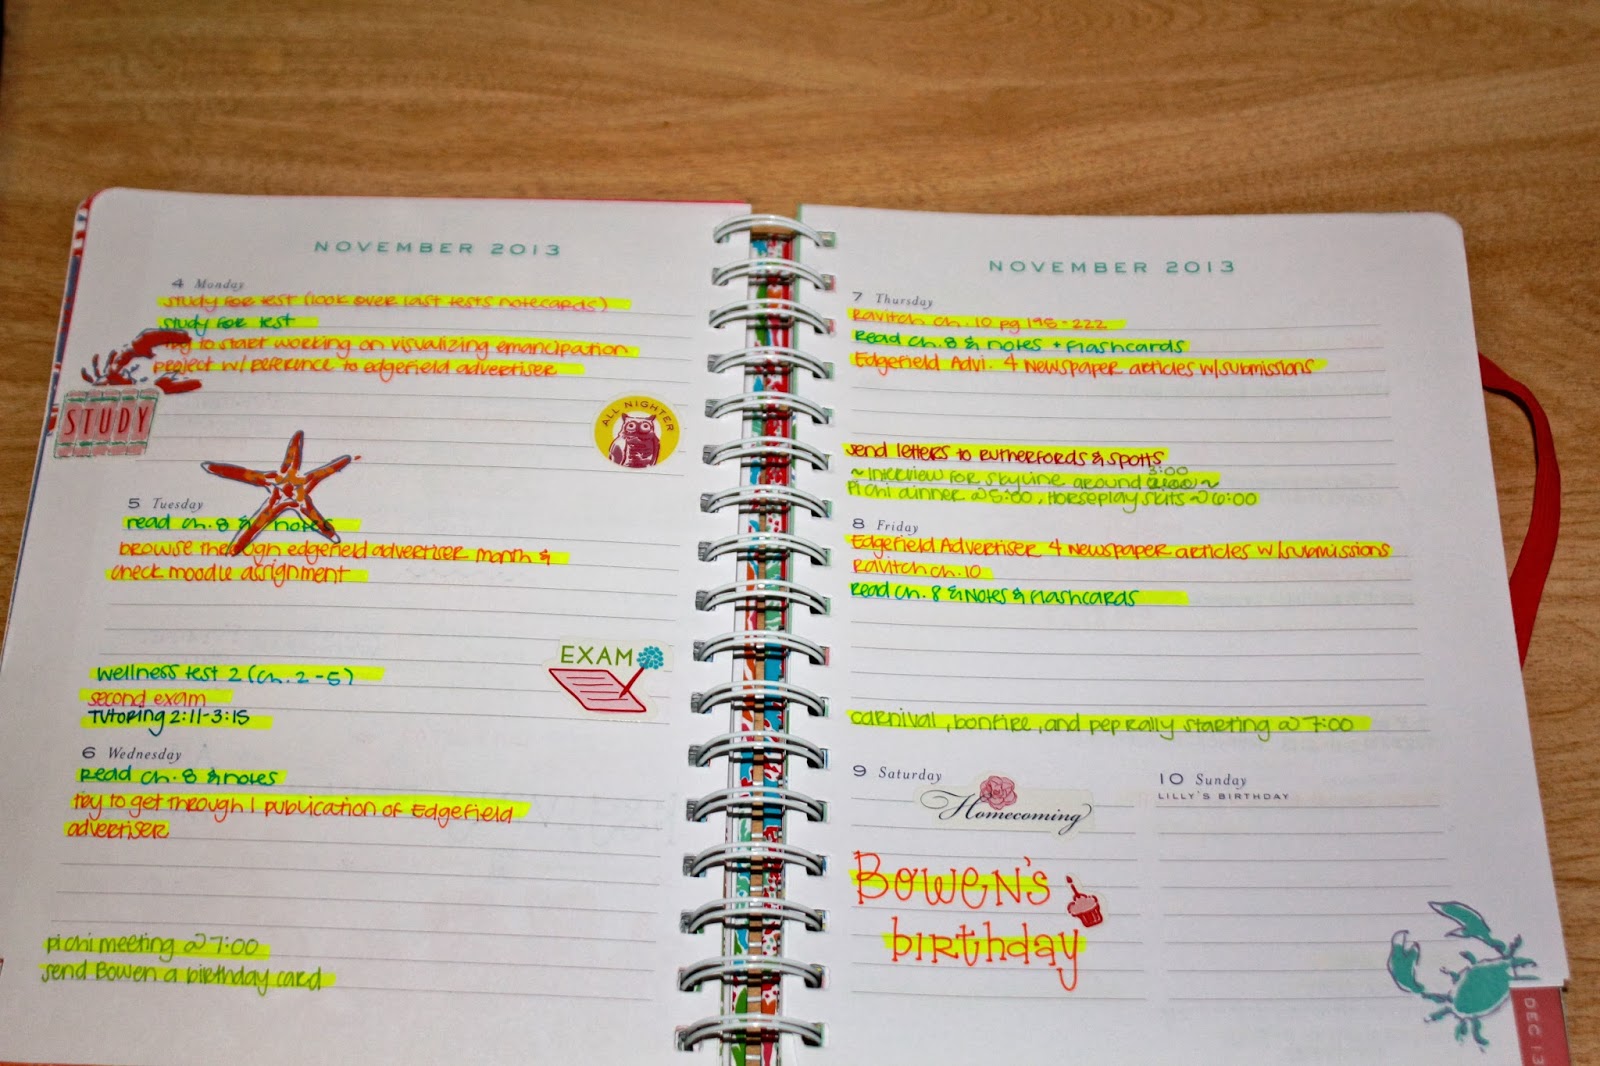 NOVEMBER 2013
4 Monday
study for test (look over last tests notecards)
study for test
to start working on visualizing emancipation
project w/ reference to edgefield advertiser
STUDY
ALL NIGHTER
5 Tuesday
read ch. 8 & notes
browse through edgefield advertiser month &
check moodle assignment
EXAM
wellness test 2 (ch. 2-5)
second exam
Tutoring 2:11-3:15
6 Wednesday
Read ch. 8 & notes
try to get through 1 publication of Edgefield
advertiser
pi chi meeting @ 7:00
send Bowen a birthday card
NOVEMBER 2013
7 Thursday
Ravitch ch. 10 pg 195-222
Read ch. 8 & notes + flashcards
Edgefield Advi. 4 Newspaper articles w/submissions
send letters to Rutherfords & Spotts
3:00
~ Interview for skyline around ~
Pi chi dinner @ 5:00, Horseplay skits ~ 6:00
8 Friday
Edgefield Advertiser 4 Newspaper articles w/submissions
Ravitch ch. 10
Read Ch. 8 & Notes & Flashcards
carnival, bonfire, and pep rally starting @ 7:00
9 Saturday
Homecoming
Bowen's
birthday
10 Sunday
LILLY'S BIRTHDAY
DEC 13